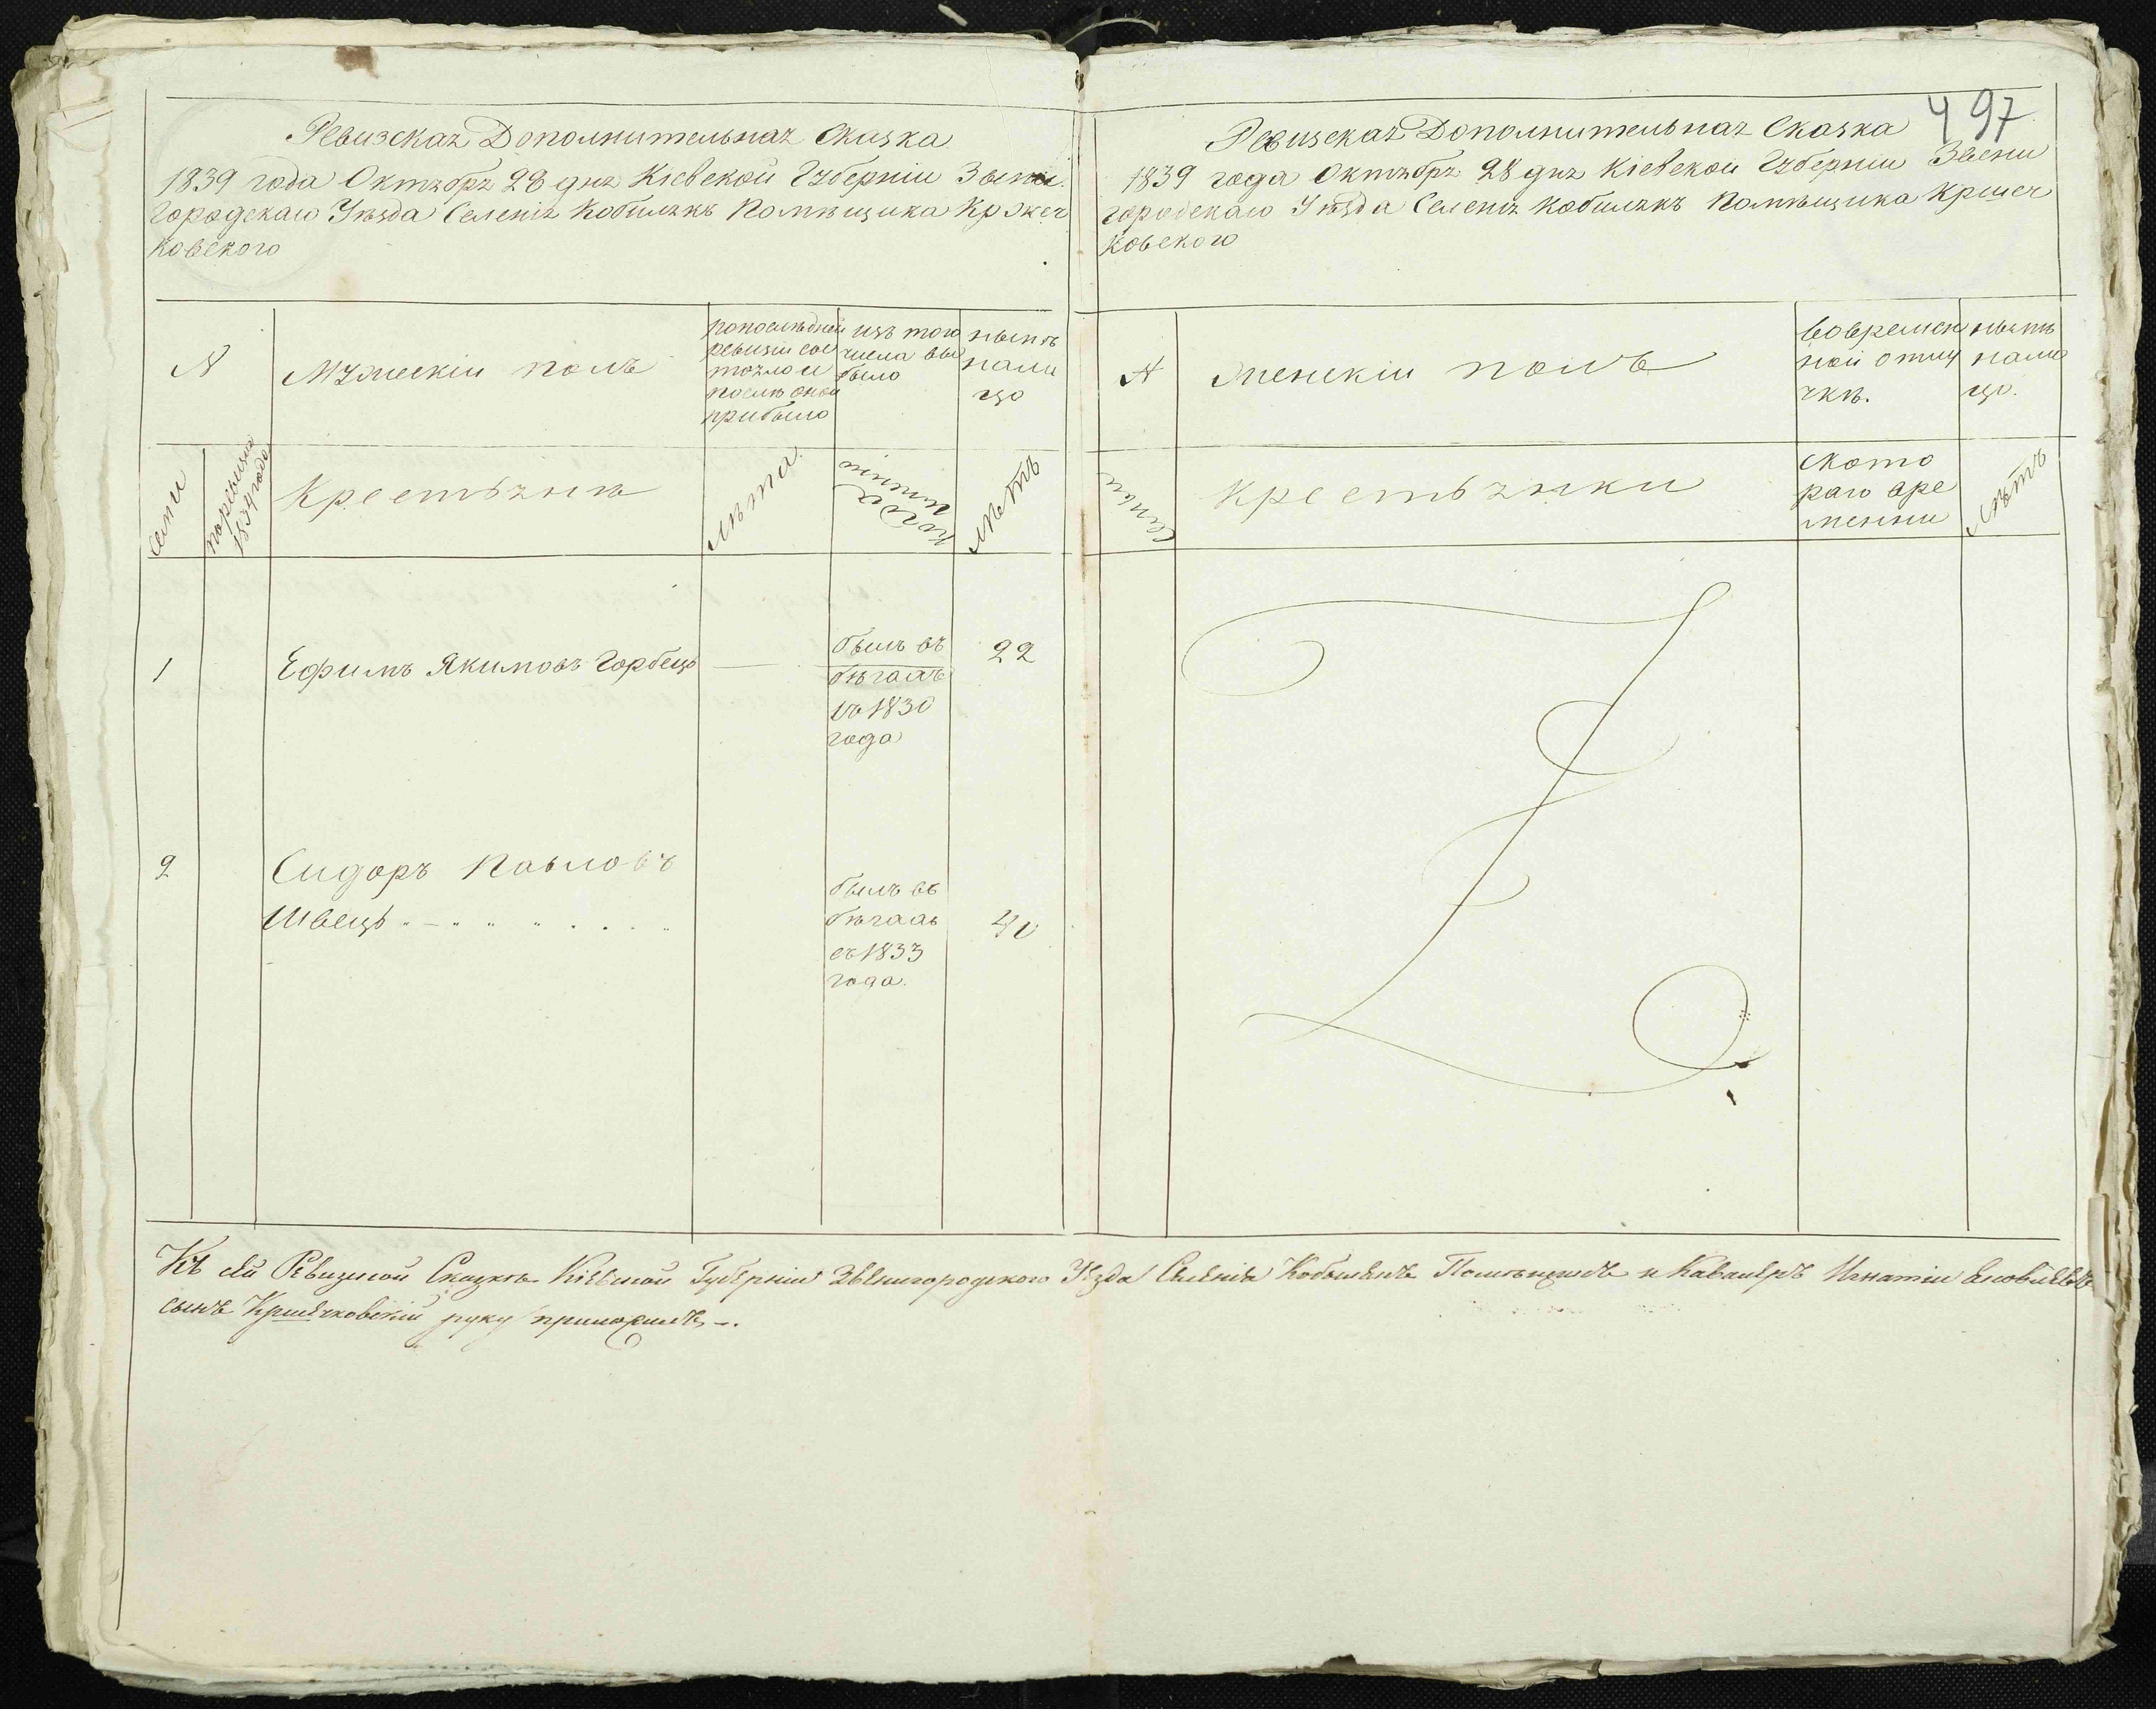 497
Ревизская Дополнительная Сказка
1839 года Октября 28 дня Кіевской Губерніи Звени
городскаго Уѣзда Селенія Кобылякъ Помѣщика Кржеч
ковского
№
Мужескій полъ
попослѣдней
ревизіи сос
тояло и
послѣ оной
прибыло
изъ того
числа вы
было
нынѣ
нали
цо
семьи
поревизіи
1834 года
Крестьянѣ
лѣта
когда
имянно
лѣтъ
1
Ефимъ Якимовъ Горбець
былъ въ
бѣгахъ
съ 1830
года
22
2
Сидоръ Павловъ
Швецъ
былъ въ
бѣгахъ
съ 1833
года.
40
Ревизская Дополнительная Сказка
1839 года Октября 28 дня Кіевской Губерніи Звени
городскаго Уѣзда Селенія Кобылякъ Помѣщика Кршеч
ковского
№
Женскій полъ
вовремен
ной отлу
чкѣ.
нынѣ
нали
цо.
Семьи
Крестьянки
ското
раго вре
менни
Лѣтъ
Къ сей Ревизской Сказкѣ Кіевской Губерніи Звенигородского Уѣзда Селенія Кобылякъ Помѣщикъ и Кавалеръ Игнатій
сынъ Кршечковскій руку приложилъ